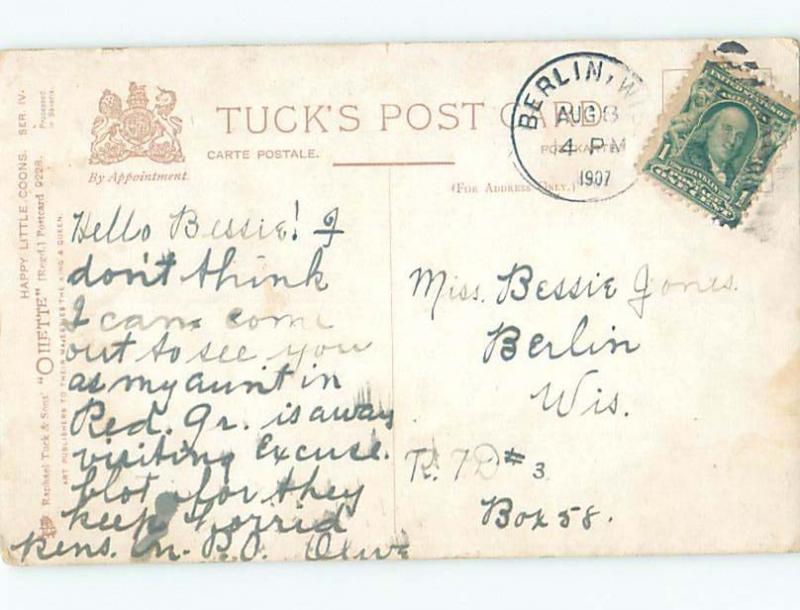 TUCK'S POST CARD
CARTE POSTALE. POSTKARTE
By Appointment.
(For Address Only.)
HAPPY LITTLE COONS. SER. IV.
Processed in Bavaria.
Raphael Tuck & Sons' "OILETTE" [Regd.] Postcard 9228.
ART PUBLISHERS TO THEIR MAJESTIES THE KING & QUEEN.
BERLIN, WI
AUG 8
4 PM
1907
FRANKLIN
1
Hello Bessie! I
don't think
I can come
out to see you
as my aunt in
Red. Gr. is away
visiting Excuse.
blot for they
keep horrid
pens. in. P.O. Olive
Miss. Bessie Jones.
Berlin
Wis.
R. 7D #3
Box 58.